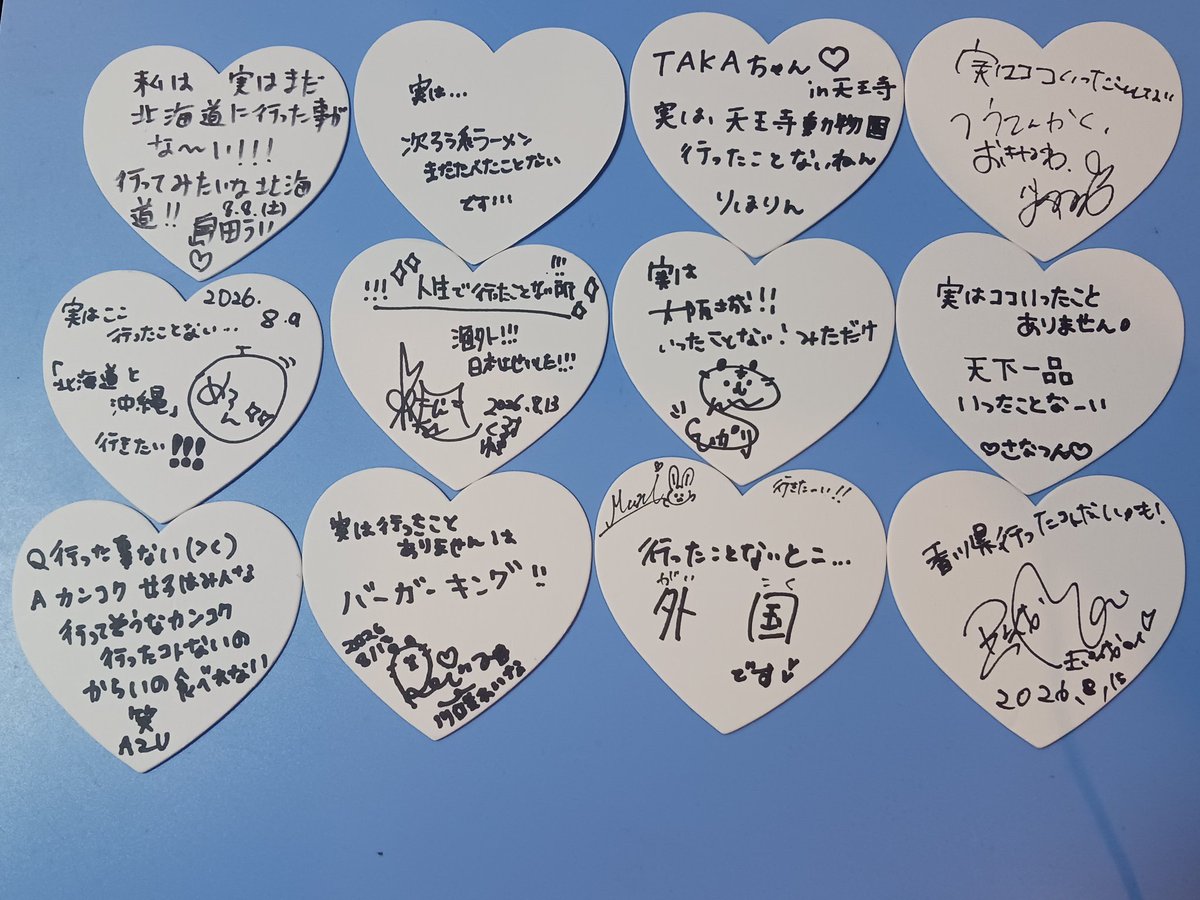 私は 実はまだ
北海道に行った事が
な〜い!!!
行ってみたいな北海
道!!
8.8.(土)
田うい
実は...
次ろう系ラーメン
まだたべたことない
です...
TAKAちゃん♡
in天王寺
実は、天王寺動物園
行ったことないねん
りほりん
実はココいったことしてない
つうてんかく、
2026.
8.9
実はここ
行ったことない..
「北海道と
沖縄」
めろん
行きたい!!!
!!!人生で行ったことない所!!!
海外!!!
日本はせいした!!!
2026.8.13
実は
大阪城!!
いったことない!みただけ
ひかり
実はココいったこと
ありません。
天下一品
いったことなーい
♡さなつん♡
Q行った事ない(>く)
A カンコク 女子はみんな
行ってそうなカンコク
行ったコトないの
からいの食べれない
笑
AZU
実は行ったこと
ありませんは
バーガーキング!!
2026
れいな
行きたーい!!
行ったことないとこ...
がい こく
外 国
です♡
香川県行ったコトないかも!
2026.8.15